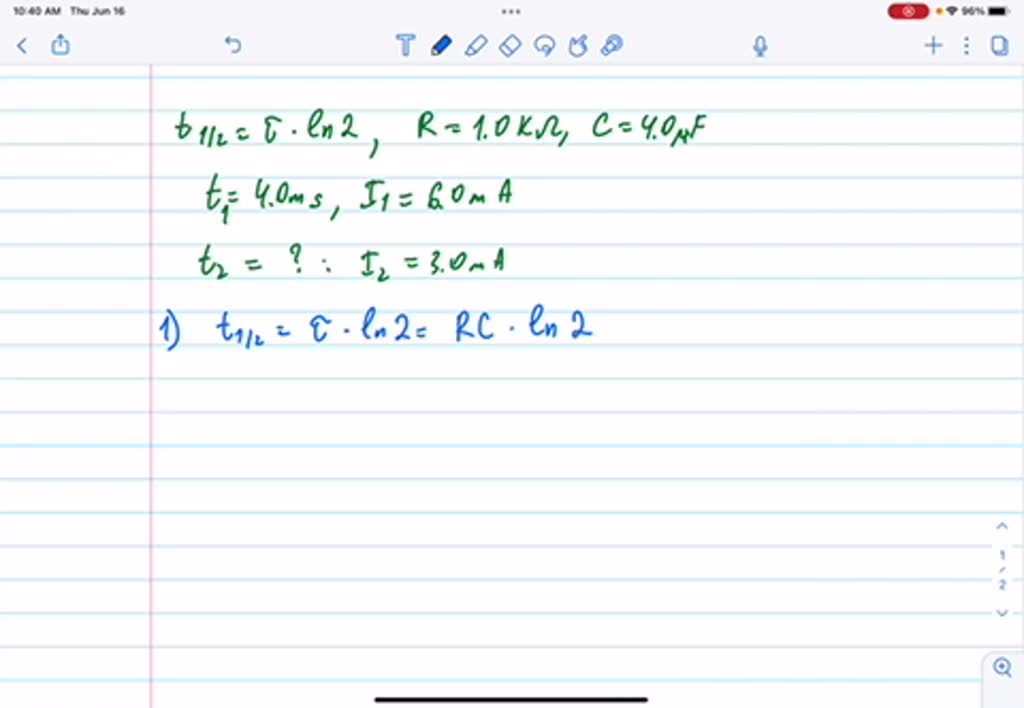 10:40 AM Thu Jun 16
96%
t1/2 = τ · ln2, R = 1.0 KΩ, C = 4.0μF
t1 = 4.0ms, I1 = 6.0mA
t2 = ? : I2 = 3.0mA
1) t1/2 = τ · ln2 = RC · ln2
1
/
2